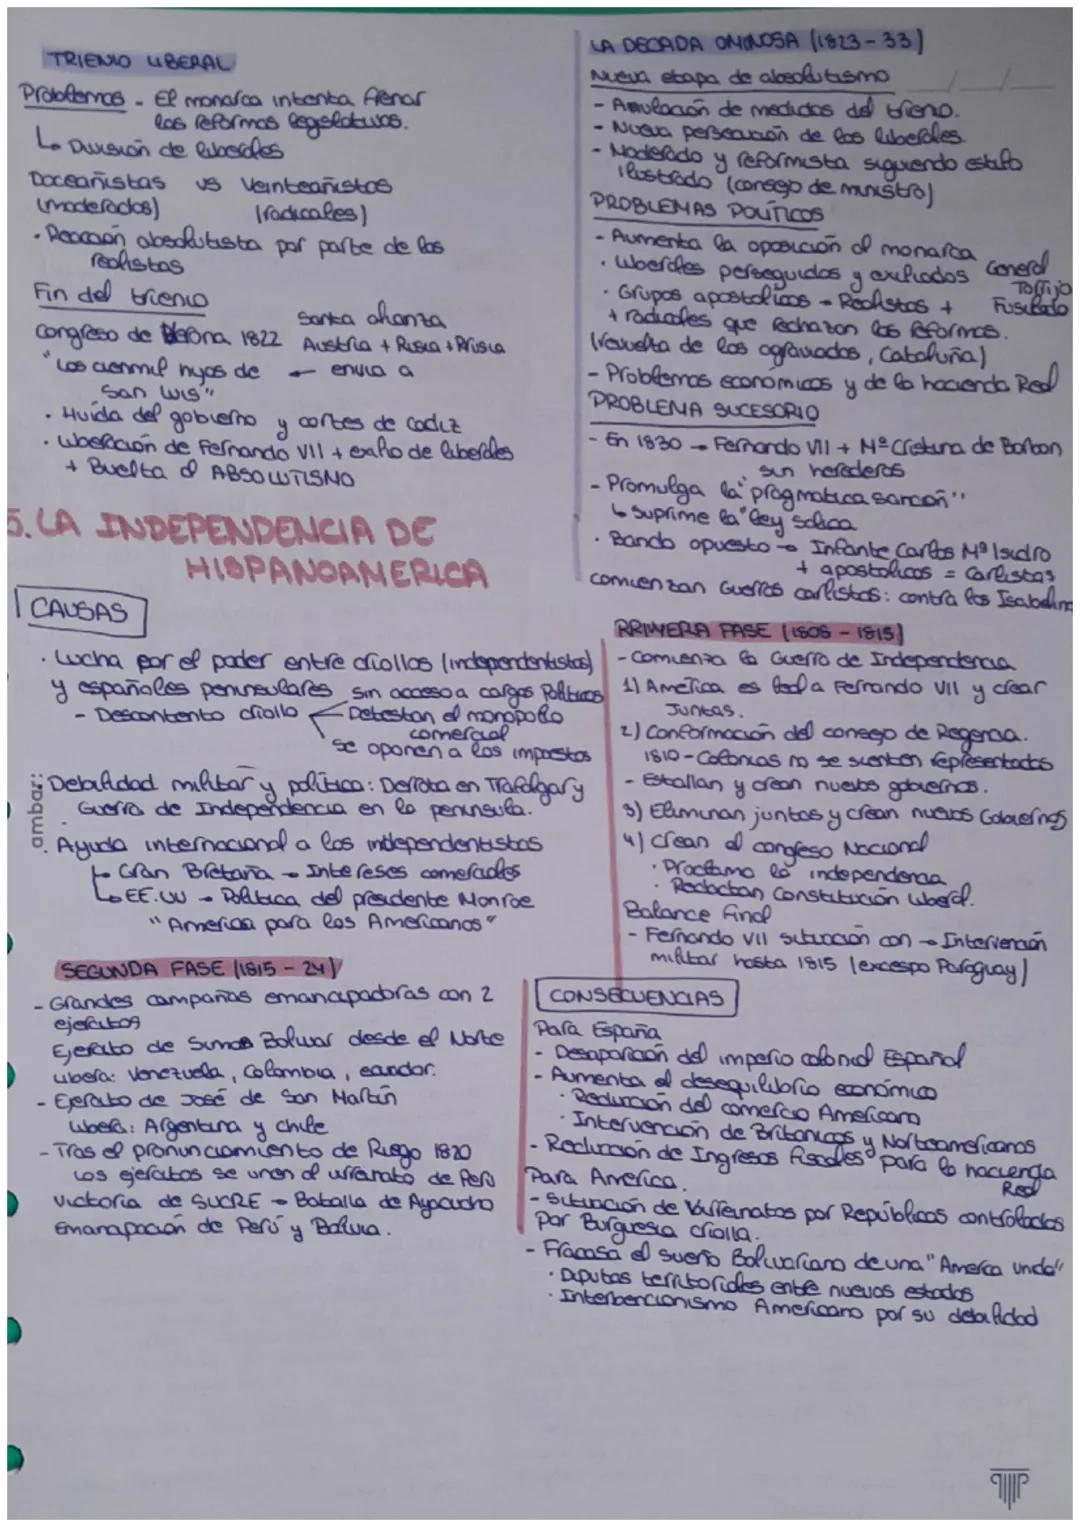 TRIENIO LIBERAL
Problemas - El monarca intenta frenar
las reformas legislativas.
↳ División de liberales
Doceañistas vs Veinteañistas
(moderados) (radicales)
· Reacción absolutista por parte de los
realistas
Fin del trienio
Santa alianza
Congreso de Verona 1822 Austria + Rusia + Prusia
"Los cienmil hijos de ← envia a
San Luis"
· Huida del gobierno y cortes de Cadiz
· Liberación de Fernando VII + exilio de liberales
+ Buelta al ABSOLUTISMO
5. LA INDEPENDENCIA DE
HISPANOAMERICA
CAUSAS
· Lucha por el poder entre criollos (independentistas)
y españoles peninsulares sin acceso a cargos Políticos
- Descontento criollo Detestan el monopolio
comercial
se oponen a los impuestos
· Debilidad militar y política: Derrota en Trafalgar y
Guerra de Independencia en la peninsula.
· Ayuda internacional a los independentistas
↳ Gran Bretaña → Intereses comerciales
↳ EE.UU → Política del presidente Monroe
"America para los Americanos"
SEGUNDA FASE (1815 - 24)
- Grandes campañas emancipadoras con 2
ejercitos
Ejercito de Simon Bolivar desde el Norte
libera: Venezuela, Colombia, ecuador.
- Ejercito de José de San Martín
libera: Argentina y Chile
- Tras el pronunciamiento de Riego 1820
Los ejercitos se unen al virreinato de Perú
Victoria de SUCRE → Batalla de Ayacucho
Emanapación de Perú y Bolivia.
LA DECADA OMINOSA (1823 - 33)
Nueva etapa de absolutismo
- Anulación de medidas del trieno.
- Nueva persecución de los liberales
- Moderado y reformista siguiendo estilo
ilustrado (consejo de ministro)
PROBLEMAS POLÍTICOS
- Aumenta la oposición al monarca
· Liberales perseguidos y exiliados General
Torrijo
Fusilado
· Grupos apostolicos → Realistas +
+ radicales que rechazan las reformas.
(revuelta de los agraviados, Cataluña)
- Problemas económicos y de la hacienda Real
PROBLEMA SUCESORIO
- En 1830 → Fernando VII + Mª Cristina de Borbon
sin herederos
- Promulga la "pragmatica sanción"
↳ suprime la "ley salica
· Bando opuesto → Infante Carlos Mª Isidro
+ apostolicos = Carlistas
comienzan Guerras carlistas: contra los Isabelinos
PRIMERA FASE (1808 - 1815)
- Comienza la Guerra de Independencia
1) América es leal a Fernando VII y crear
Juntas.
2) Conformación del consejo de Regencia.
1810 - Colonias no se sienten representadas
- Estallan y crean nuevos gobiernos.
3) Eliminan juntas y crean nuevos Gobiernos
4) Crean el congreso Nacional
· Proclama la independencia
· Redactan Constitución liberal.
Balance final
- Fernando VII situación con → Intervención
militar hasta 1815 (excepto Paraguay)
CONSECUENCIAS
Para España
- Desaparición del imperio colonial Español
- Aumenta el desequilibrio económico
· Reducción del comercio Americano
· Intervención de Britanicos y Norteamericanos
- Reducción de Ingresos fiscales para la hacienda
Real
Para América.
- Situación de Virreinatos por Repúblicas controladas
por Burguesia criolla.
- Fracasa el sueño Bolivariano de una "America unida"
· Disputas territoriales entre nuevos estados
· Interbencionismo Americano por su debilidad
ambar